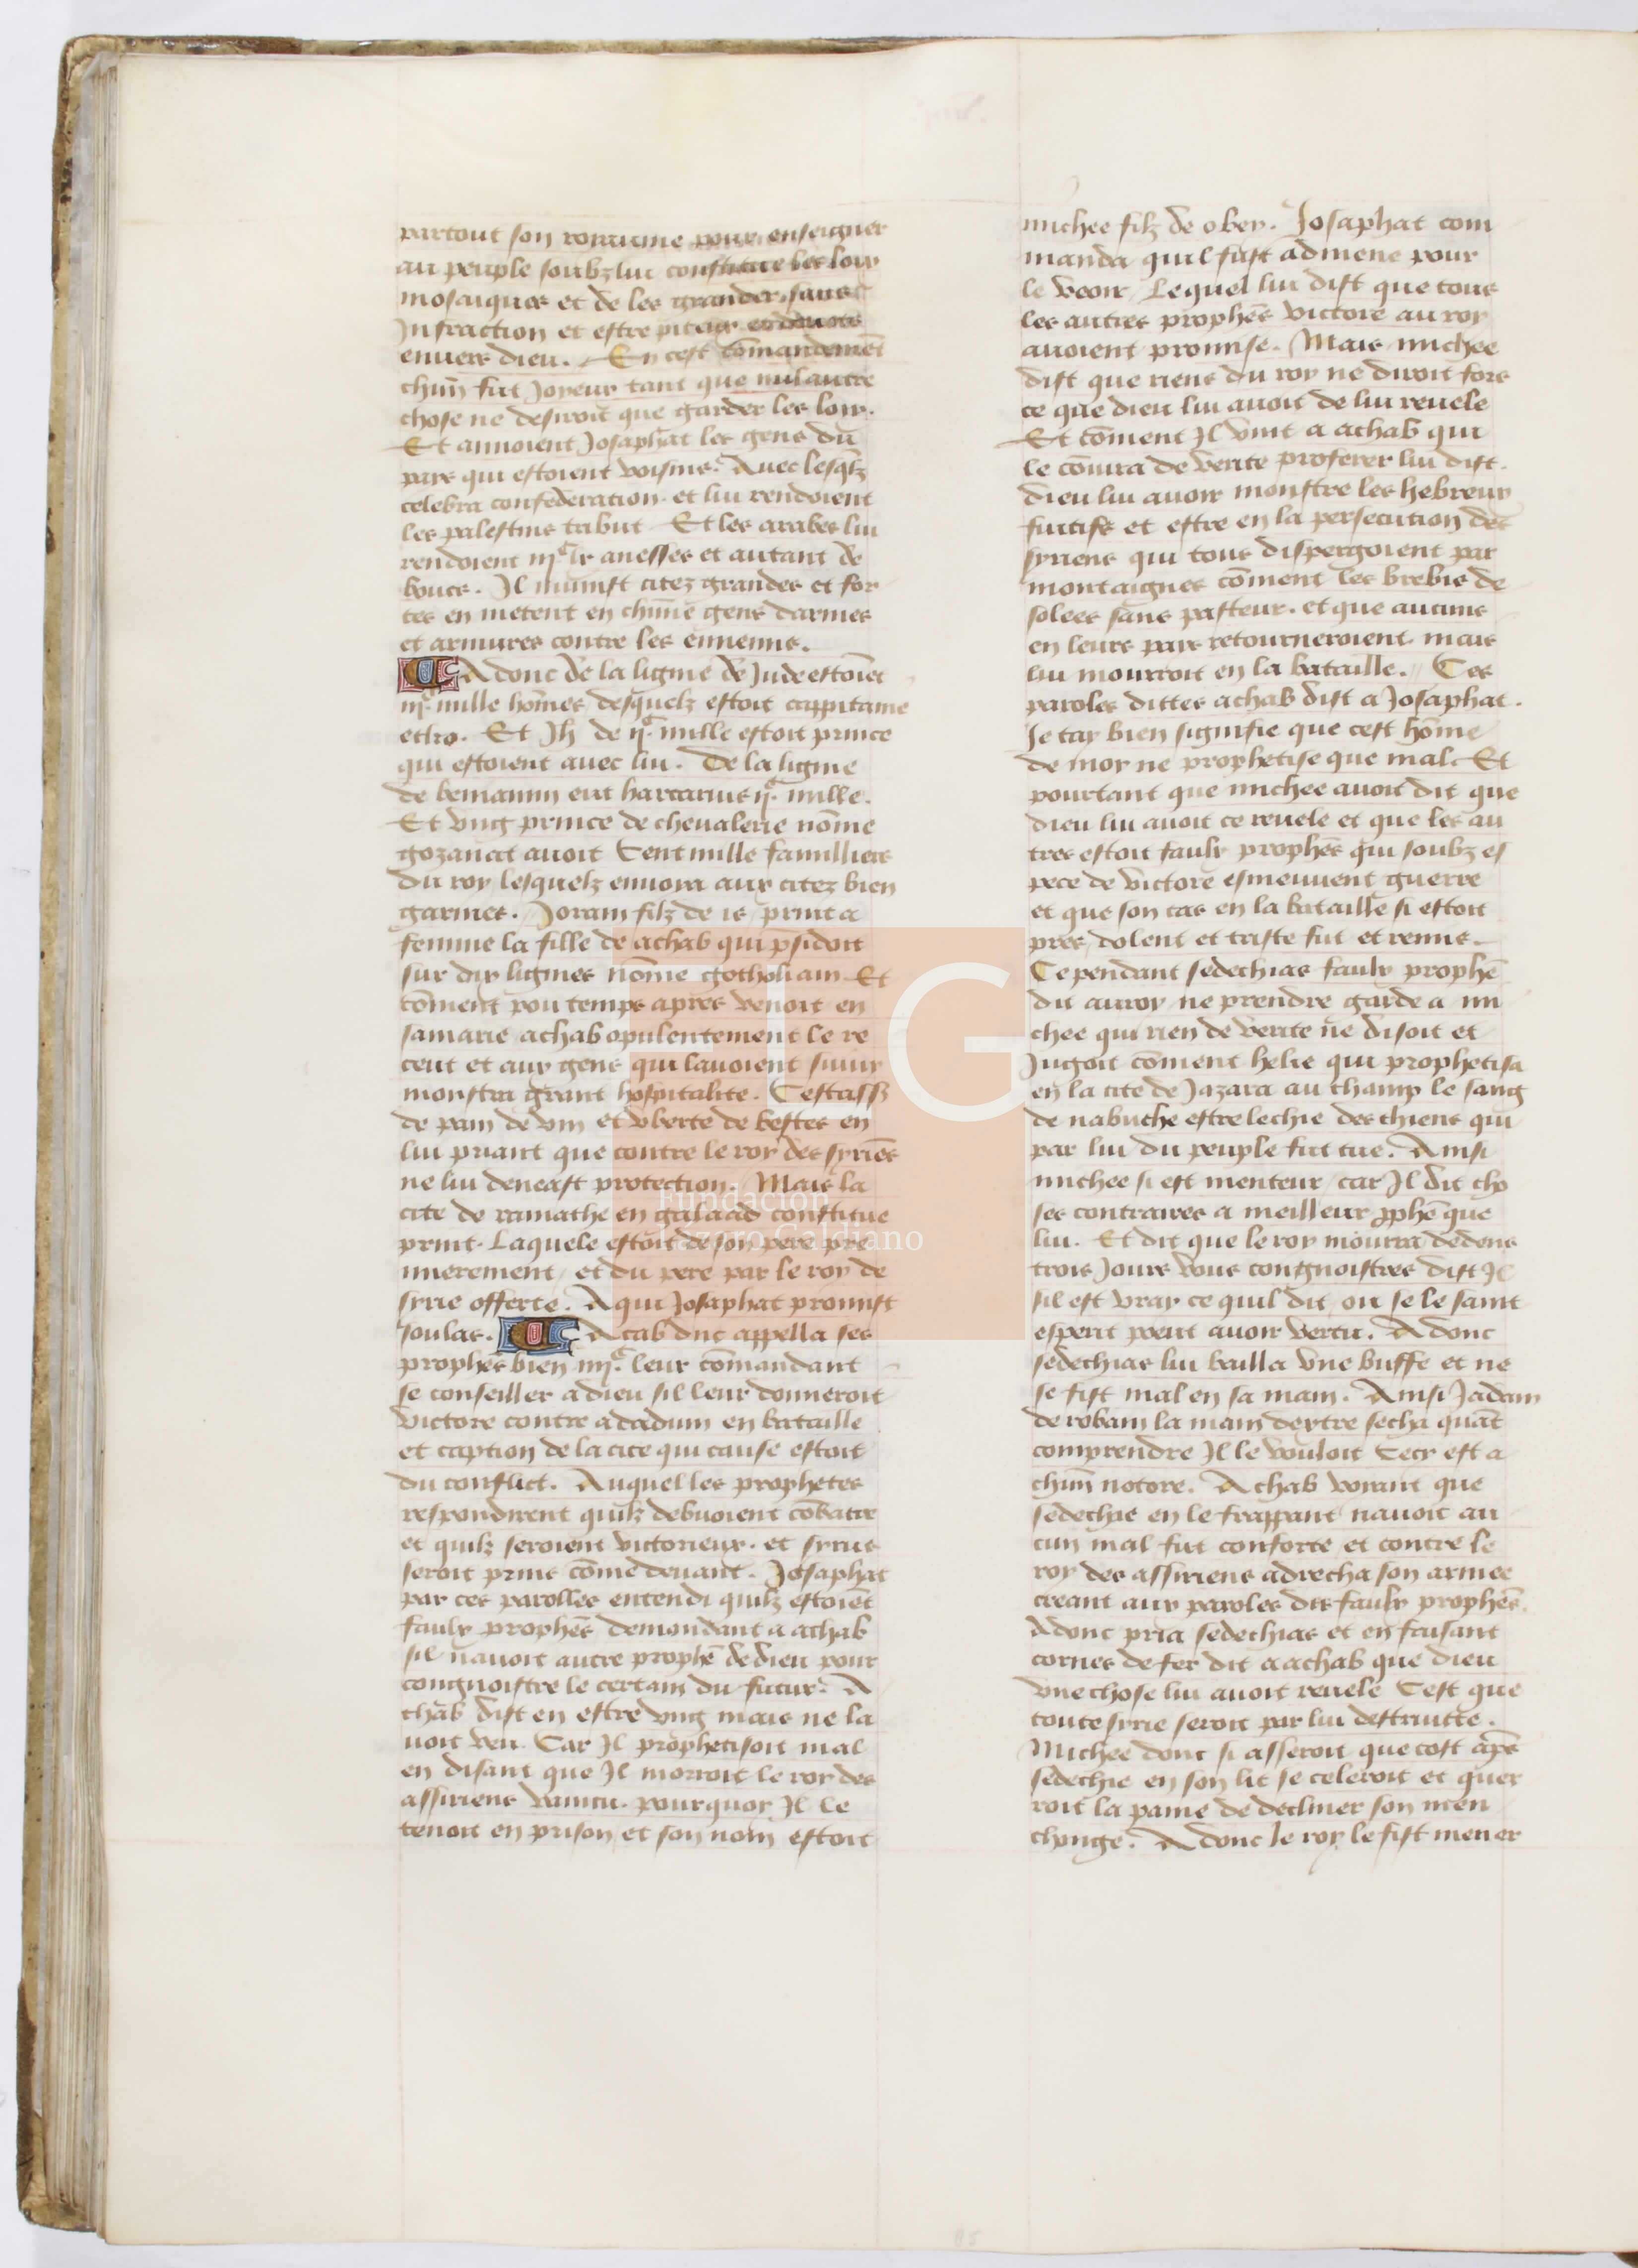 partout son royaume pour enseigner
au peuple soubz lui constitue les loix
mosaiques et de les garder sans
Infraction et estre piteux et deuotz
enuers dieu. En cest cōmandemēt
chūn fut Joyeux tant que nul autre
chose ne desiroit que garder les loix.
Et aimoient Josaphat les gens du
pays qui estoient voisins. Auec lesqlz
celebra confederation. et lui rendoient
les palestins tribut Et les arabes lui
rendoient iijᶜ lx anesses et autant de
boucs. Il munist citez grandes et for
tes en metent en chūne gens darmes
et armures contre les ennemis.
Adonc de la lignie de Jude estoiēt
iijᶜ mille hōmes desquelz estoit cappitaine
etho. Et Jh de ijᶜ mille estoit prince
qui estoient auec lui. De la lignie
de beniamin eut hartarius ijᶜ mille.
Et vng prince de cheualerie nōme
gozanat auoit Cent mille familliers
du roy lesquelz enuoya aux citez bien
garnies. Joram filz de is print a
femme la fille de achab qui p̄sidoit
sur dix lignies nōme gotholiam Et
cōment pou temps apres venoit en
samarie achab opulentement le re
ceut et aux gens qui lauoient suiuy
monstra grant hospitalite. Cestassz
de pain de vin et vberte de bestes en
lui priant que contre le roy des syriēs
ne lui deneast protection. Mais la
cite de ramathe en galaad constitue
print. Laquele estoit de son pere pre
mierement, et du pere par le roy de
syrie offerte. A qui Josaphat promist
soulas. Acab duc appella ses
prophēs bien iiijᶜ leur cōmandant
se conseiller a dieu sil leur donneroit
victore contre adadum en bataille
et caption de la cite qui cause estoit
du conflict. Auquel les prophetes
respondirent quilz debuoient cōbatre
et quilz seroient victorieux. et syrus
seroit prins cōme deuant. Josaphat
par ces parolles entendi quilz estoiēt
faulx prophēs demandant a achab
sil nauoit autre prophē de dieu pour
congnoistre le certain du futur. A
chab dist en estre vng mais ne la
uoit veu. Car Il prophetisoit mal
en disant que Il morroit le roy des
assiriens vaincu. pourquoy Il le
tenoit en prison et son nom estoit
michee filz de obey. Josaphat com
manda quil fust admene pour
le veoir, Lequel lui dist que tous
les autres prophēs victore au roy
auoient promise. Mais michee
dist que riens du roy ne diroit fors
ce que dieu lui auoit de lui reuele
Et cōment Il vint a achab qui
le cōiura de verite proferer lui dist.
dieu lui auoir monstre les hebreux
fuitifs et estre en la persecution des
syriens qui tous dispergoient par
montaignes cōment les brebis de
solees sans pasteur. et que aucuns
en leurs pays retourneroient mais
lui mourroit en la bataille. Ces
paroles dittes achab dist a Josaphat.
Je tay bien signifie que cest hōme
de moy ne prophetise que mal. Et
pourtant que michee auoit dit que
dieu lui auoit ce reuele et que les au
tres estoit faulx prophēs qui soubz es
pece de victore esmeuuent guerre
et que son cas en la bataille si estoit
pres, dolent et triste fut et remis.
Ce pendant sedechias faulx prophē
dit au roy ne prendre garde a mi
chee qui rien de verite ne disoit et
Jugoit cōment helie qui prophetisa
en la cite de Jazara au champ le sang
de nabuche estre lechie des chiens qui
par lui du peuple fut tue. Ainsi
michee si est menteur, car Il dit cho
ses contraires a meilleur pphē que
lui. Et dit que le roy mourra dedens
trois Jours vous congnoistres dist Il
sil est vray ce quil dit, ou se le saint
esperit peut auoir vertu. Adonc
sedechias lui bailla vne buffe et ne
se fist mal en sa main. Ainsi Jadam
de robam la main dextre secha quāt
comprendre Il le vouloit Cecy est a
chūn notore. Achab voyant que
sedechie en le frappant nauoit au
cun mal fut conforte et contre le
roy des assiriens adrecha son armee
creant aux paroles des faulx prophēs.
Adonc pria sedechias et en faisant
cornes de fer dit a achab que dieu
vne chose lui auoit reuele Cest que
toute syrie seroit par lui destruitte.
Michee donc si asseroit que tost apēs
sedechie en son lit se celeroit et quer
roit la paine de decliner son men
chonge. Adonc le roy le fist mener
Fundación
Lázaro Galdiano